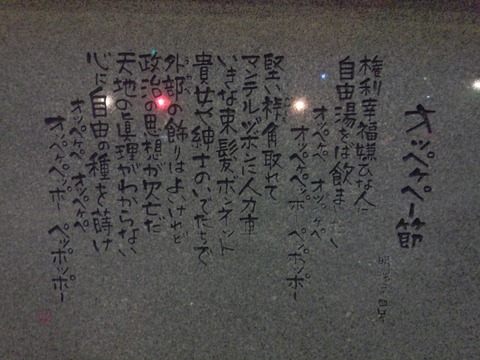 オッペケペー節
明治二四年
権利幸福嫌ひな人に
自由湯をば飲ましたい
オッペケペ オッペケペ
オッペケペッポー ペッポッポー
堅い裃角取れて
マンテルヅボンに人力車
いきな束髪ボンネット
貴女や紳士のいでたちで
外部の飾りはよいけれど
政治の思想が欠乏だ
天地の眞理がわからない
心に自由の種を蒔け
オッペケペ オッペケペ
オッペケペッポー ペッポッポー